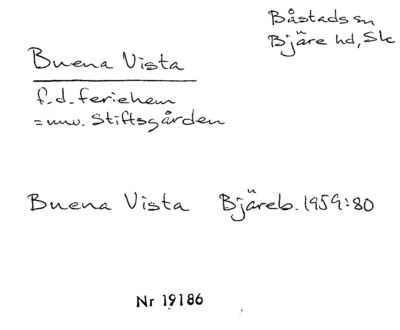 Båstads sn
Bjäre hd, Sk
Buena Vista
f.d. feriehem
= nuv. Stiftsgården
Buena Vista Bjäreb. 1959:80
Nr 19186